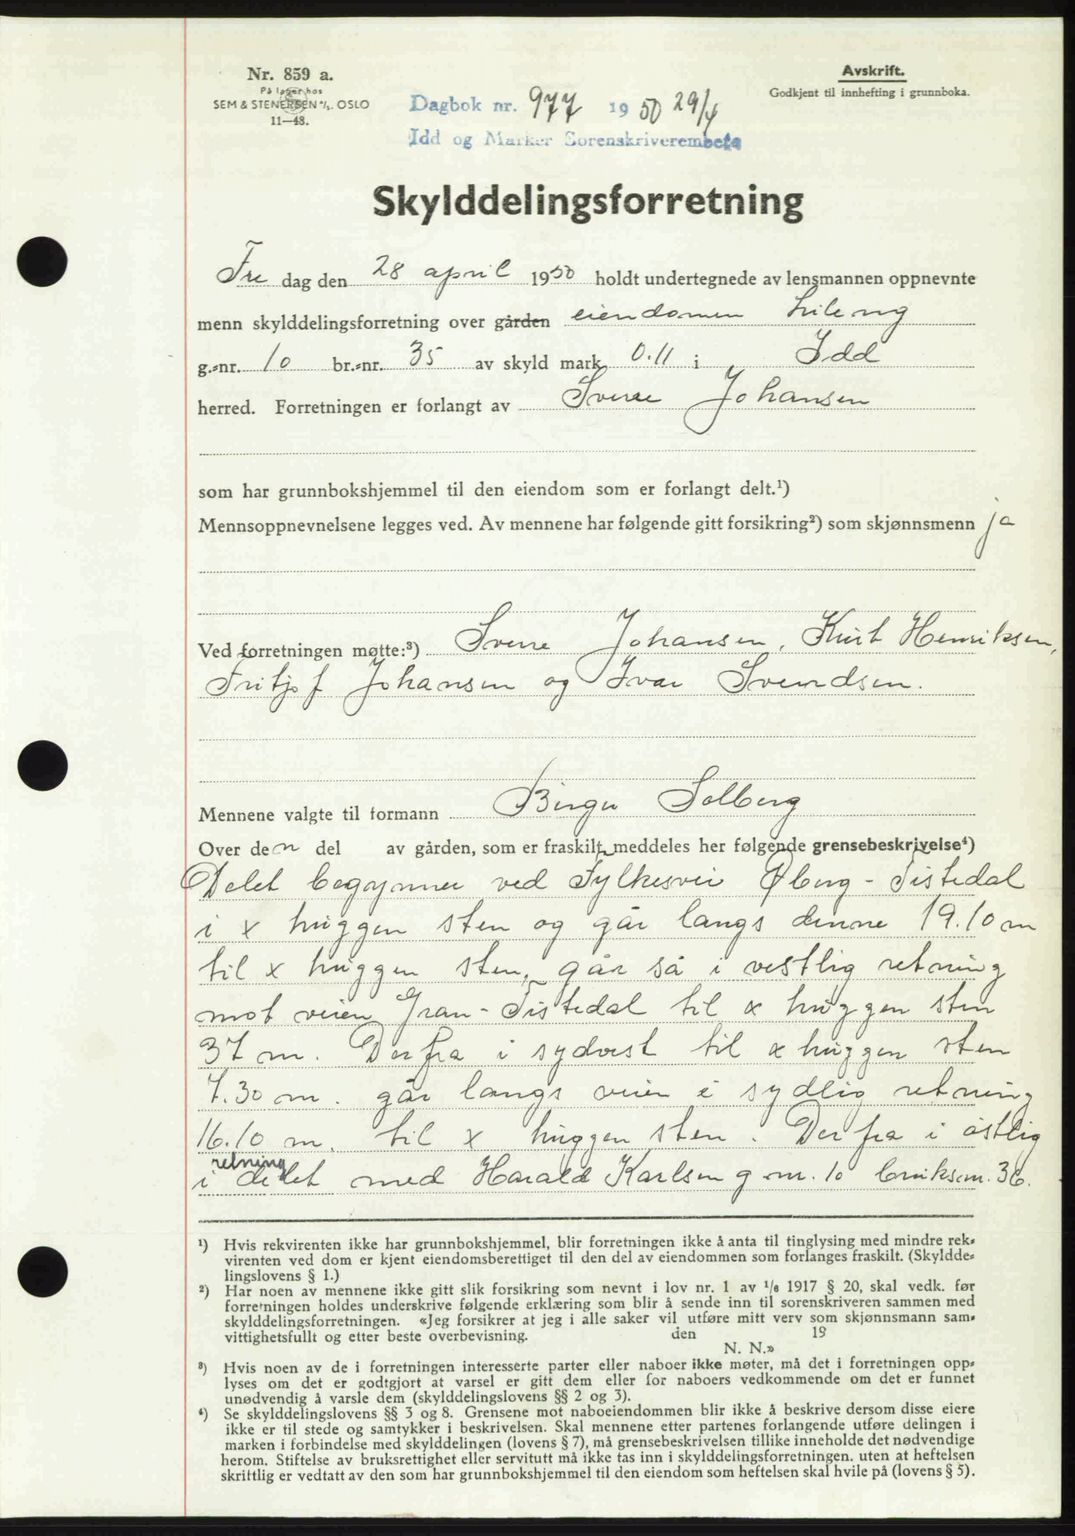 Nr. 859 a.
På lager hos
SEM & STENERSEN A/S. OSLO
11—48.
Avskrift.
Godkjent til innhefting i grunnboka.
Dagbok nr. 977 1950 29/4
Idd og Marker Sorenskriverembete
Skylddelingsforretning
Fre dag den 28 april 1950 holdt undertegnede av lensmannen oppnevnte
menn skylddelingsforretning over gården eiendomen Lileng
g.-nr. 10 br.-nr. 35 av skyld mark 0.11 i Idd
herred. Forretningen er forlangt av Sverre Johansen
som har grunnbokshjemmel til den eiendom som er forlangt delt.¹)
Mennsoppnevnelsene legges ved. Av mennene har følgende gitt forsikring²) som skjønnsmenn ja
Ved forretningen møtte:³) Sverre Johansen, Knut Henriksen,
Fritjof Johansen og Ivar Svendsen.
Mennene valgte til formann Birger Solberg
Over den del av gården, som er fraskilt, meddeles her følgende grensebeskrivelse⁴)
Delet begynner ved Fylkesvei Øberg - Tistedal
i x huggen sten og går langs denne 19.10 m
til x huggen sten, går så i vestlig retning
mot veien Gran - Tistedal til x huggen sten
37 m. Derfra i sydvest til x huggen sten
7.30 m. går langs veien i sydlig retning
16.10 m. til x huggen sten. Derfra i østlig
retning
i delet med Harald Karlsen g.nr. 10 bruksnr. 36.
¹) Hvis rekvirenten ikke har grunnbokshjemmel, blir forretningen ikke å anta til tinglysing med mindre rek-
virenten ved dom er kjent eiendomsberettiget til den del av eiendommen som forlanges fraskilt. (Skyldde-
lingslovens § 1.)
²) Har noen av mennene ikke gitt slik forsikring som nevnt i lov nr. 1 av 1/6 1917 § 20, skal vedk. før
forretningen holdes underskrive følgende erklæring som blir å sende inn til sorenskriveren sammen med
skylddelingsforretningen. «Jeg forsikrer at jeg i alle saker vil utføre mitt verv som skjønnsmann sam-
vittighetsfullt og etter beste overbevisning. den 19
N. N.»
³) Hvis noen av de i forretningen interesserte parter eller naboer ikke møter, må det i forretningen opp-
lyses om det er godtgjort at varsel er gitt dem eller for naboers vedkommende om det er funnet
unødvendig å varsle dem (skylddelingslovens §§ 2 og 3).
⁴) Se skylddelingslovens §§ 3 og 8. Grensene mot naboeiendommen blir ikke å beskrive dersom disse eiere
ikke er til stede og samtykker i beskrivelsen. Skal mennene etter partenes forlangende utføre delingen i
marken i forbindelse med skylddelingen (lovens § 7), må grensebeskrivelsen tillike inneholde det nødvendige
herom. Stiftelse av bruksrettighet eller servitutt må ikke tas inn i skylddelingsforretningen. uten at heftelsen
skriftlig er vedtatt av den som har grunnbokshjemmel til den eiendom som heftelsen skal hvile på (lovens § 5).